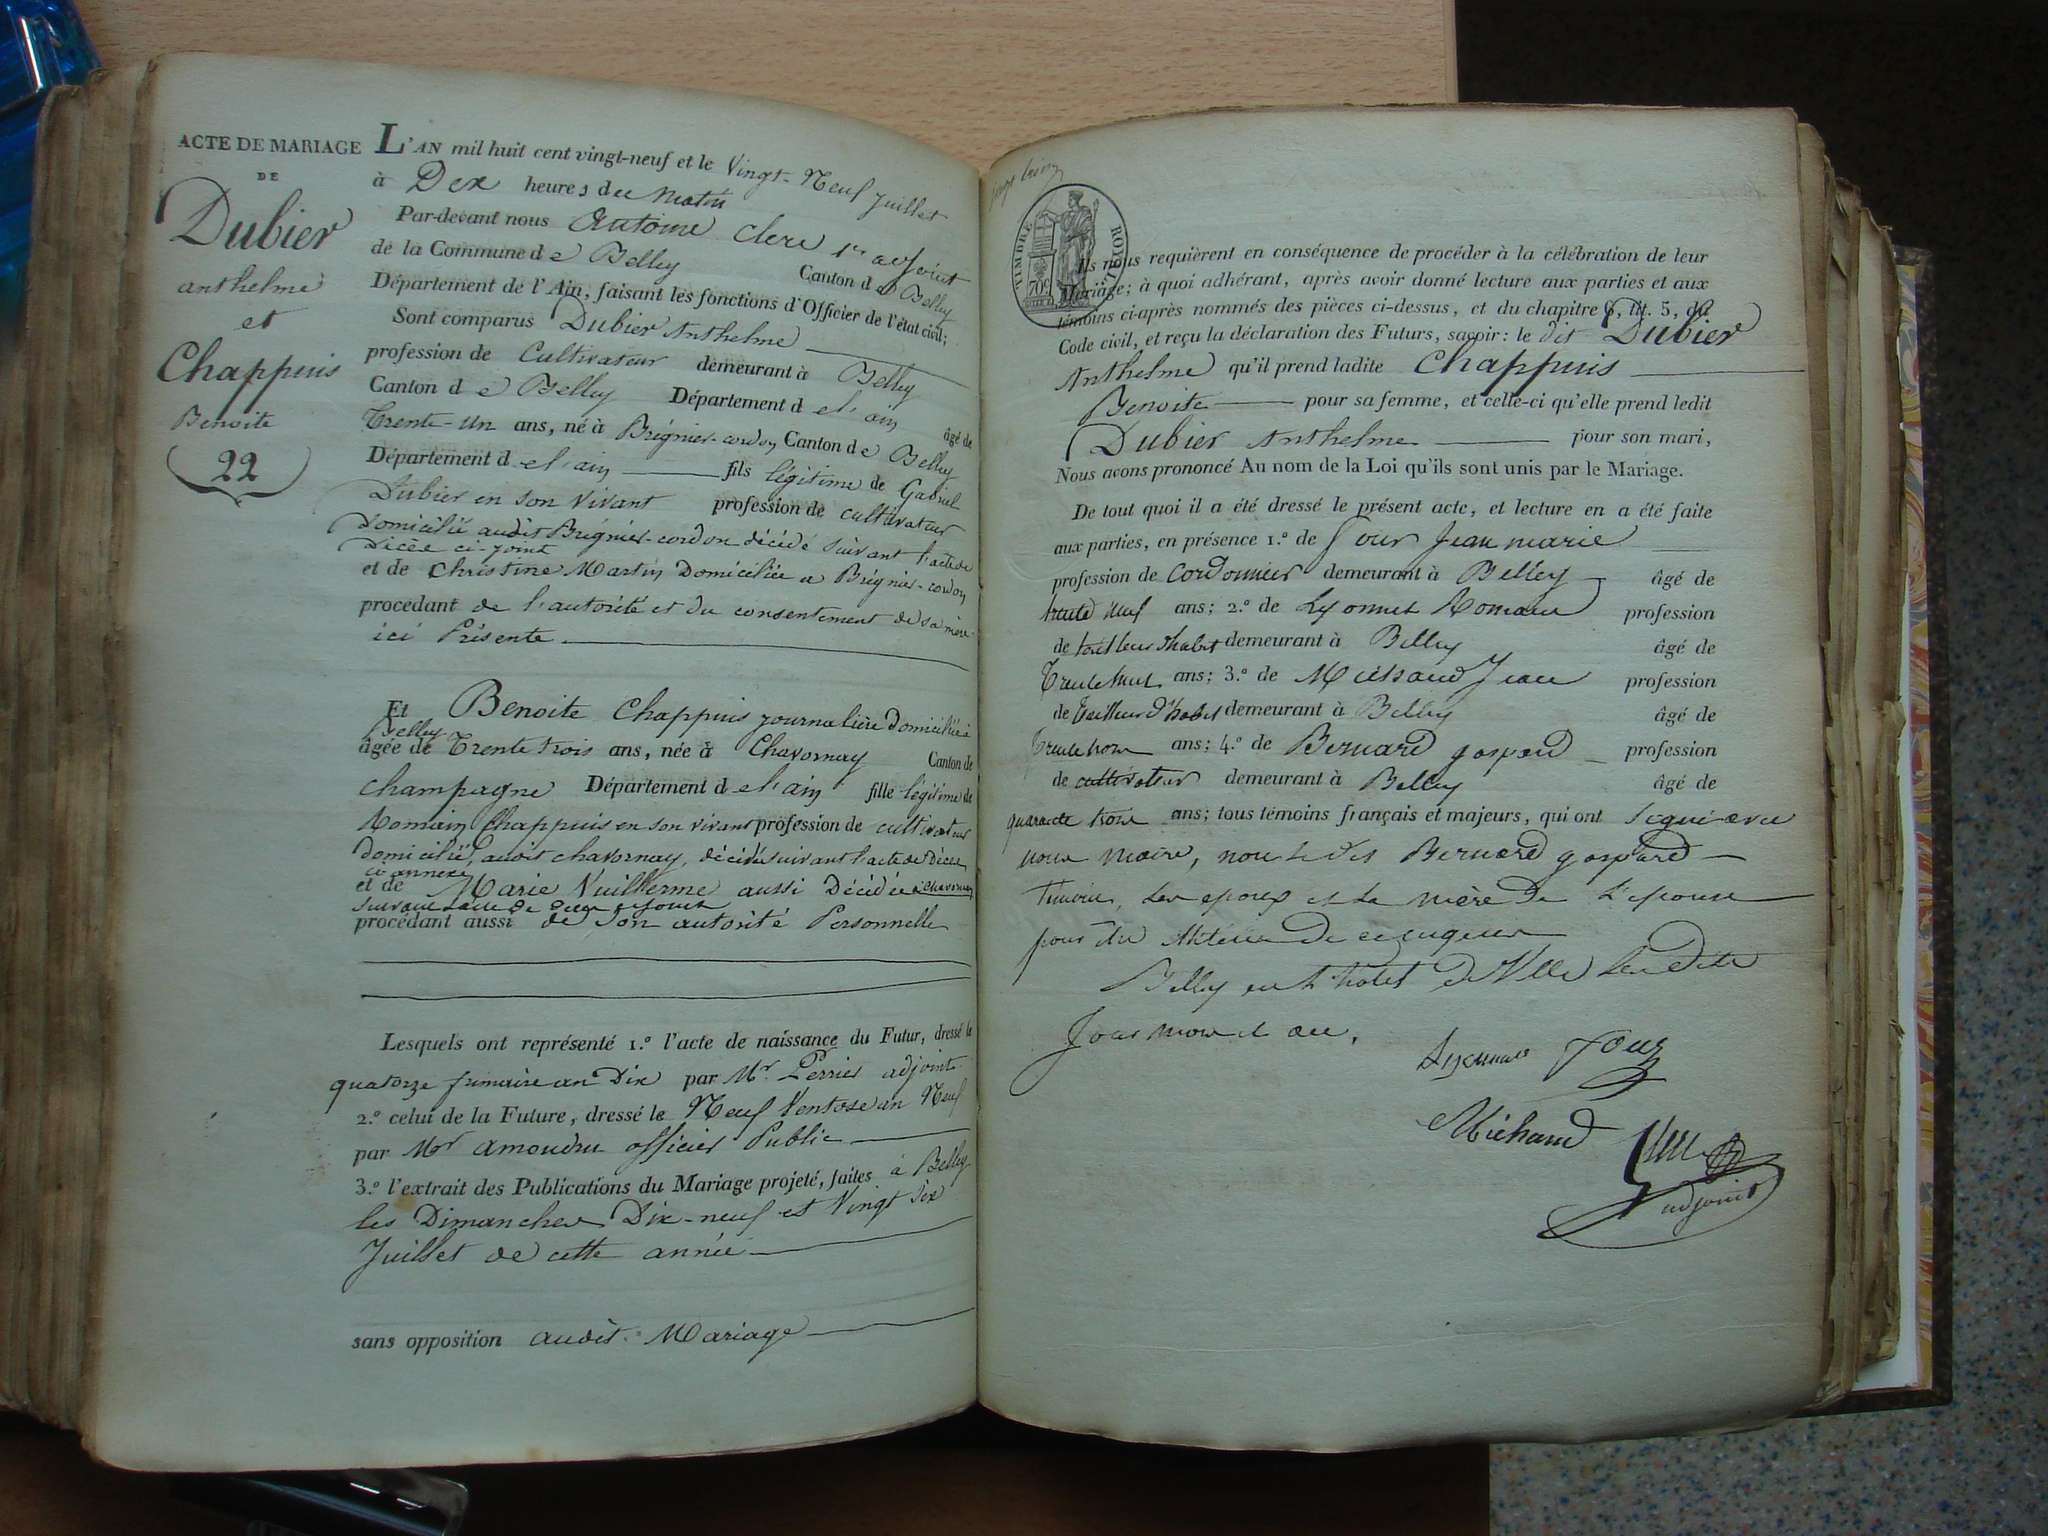 ACTE DE MARIAGE
DE
Dubier
anthelme
et
Chappuis
Benoite
22
L'AN mil huit cent vingt-neuf et le Vingt-Neuf juillet
à Dix heures du matin
Par-devant nous Antoine Clerc 1er adjoint
de la Commune de Belley Canton de Belley
Département de l'Ain, faisant les fonctions d'Officier de l'état civil;
Sont comparus Dubier Anthelme
profession de Cultivateur demeurant à Belley
Canton de Belley Département de l'ain âgé de
Trente-un ans, né à Brégnier-cordon Canton de Belley
Département de l'ain fils légitime de Gabriel
Dubier en son vivant profession de cultivateur
Domicilié audit Brégnier-cordon décédé suivant l'acte de
Décès ci-joint
et de Christine Martin Domiciliée a Brégnier-cordon
procédant de l'autorité et du consentement de sa mère
ici Présente
Et Benoite Chappuis journalière Domiciliée à
Belley
âgée de Trente trois ans, née à Chavornay Canton de
Champagne Département de l'ain fille légitime de
Romain Chappuis en son vivant profession de cultivateur
domicilié audit chavornay, décédé suivant l'acte de Décès
ci annexé
et de Marie Vuillerme aussi Décédée à chavornay
suivant l'acte de décès ci joint
procédant aussi de son autorité Personnelle
Lesquels ont représenté 1.º l'acte de naissance du Futur, dressé le
quatorze frimaire an Dix par Mr. Perrier adjoint
2.º celui de la Future, dressé le Neuf Ventose an Neuf
par Mr amoudru officier Public
3.º l'extrait des Publications du Mariage projeté, faites à Belley
les Dimanches Dix-neuf et Vingt Six
Juillet de cette année
sans opposition audit Mariage
TIMBRE ROYAL
70c
Ils nous requièrent en conséquence de procéder à la célébration de leur
Mariage; à quoi adhérant, après avoir donné lecture aux parties et aux
témoins ci-après nommés des pièces ci-dessus, et du chapitre 6, tit. 5, du
Code civil, et reçu la déclaration des Futurs, savoir: le dit Dubier
Anthelme qu'il prend ladite Chappuis
Benoite pour sa femme, et celle-ci qu'elle prend ledit
Dubier Anthelme pour son mari,
Nous avons prononcé Au nom de la Loi qu'ils sont unis par le Mariage.
De tout quoi il a été dressé le présent acte, et lecture en a été faite
aux parties, en présence 1.º de Jour Jean marie
profession de Cordonnier demeurant à Belley âgé de
trente neuf ans; 2.º de Lyonnet Romain profession
de tailleur d'habit demeurant à Belley âgé de
Trente huit ans; 3.º de Michaud Jean profession
de Tailleur d'habit demeurant à Belley âgé de
Trente trois ans; 4.º de Bernard gaspard profession
de cultivateur demeurant à Belley âgé de
quarante trois ans; tous témoins français et majeurs, qui ont signé avec
nous maire, non ledit Bernard gaspard
témoin, les epoux et la mère de l'epoux
pour de ce enquis
Belley en l'hotel de Ville les dits
Jour mois et an.
Lyonnet Jour
Michaud
adjoint